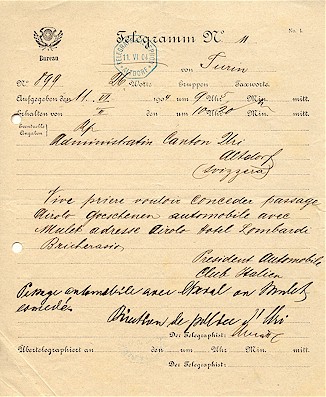 No. 1.
Telegramm No. 11
Bureau
von Turin
No. 899 26 Worte Gruppen Taxworte.
Aufgegeben den 11. VI 1904 um 9 Uhr Min. mitt.
Erhalten von 190 um 10 Uhr 20 Min. mitt.
Eventuelle Angaben Rp
Administratin Canton Uri
Altdorf
(Svizzera)
Vive priere vouloir conceder passage
Airolo Goeschenen automobile avec
Mulet adresse Airolo Hotel Lombardi
Bricherasio
President Automobile
Club Italien
Passage automobile avec cheval ou mulet
concédé
Direction de police d'Uri
Der Telegraphist:
Übertelegraphiert an den um Uhr Min. mitt.
Der Telegraphist: